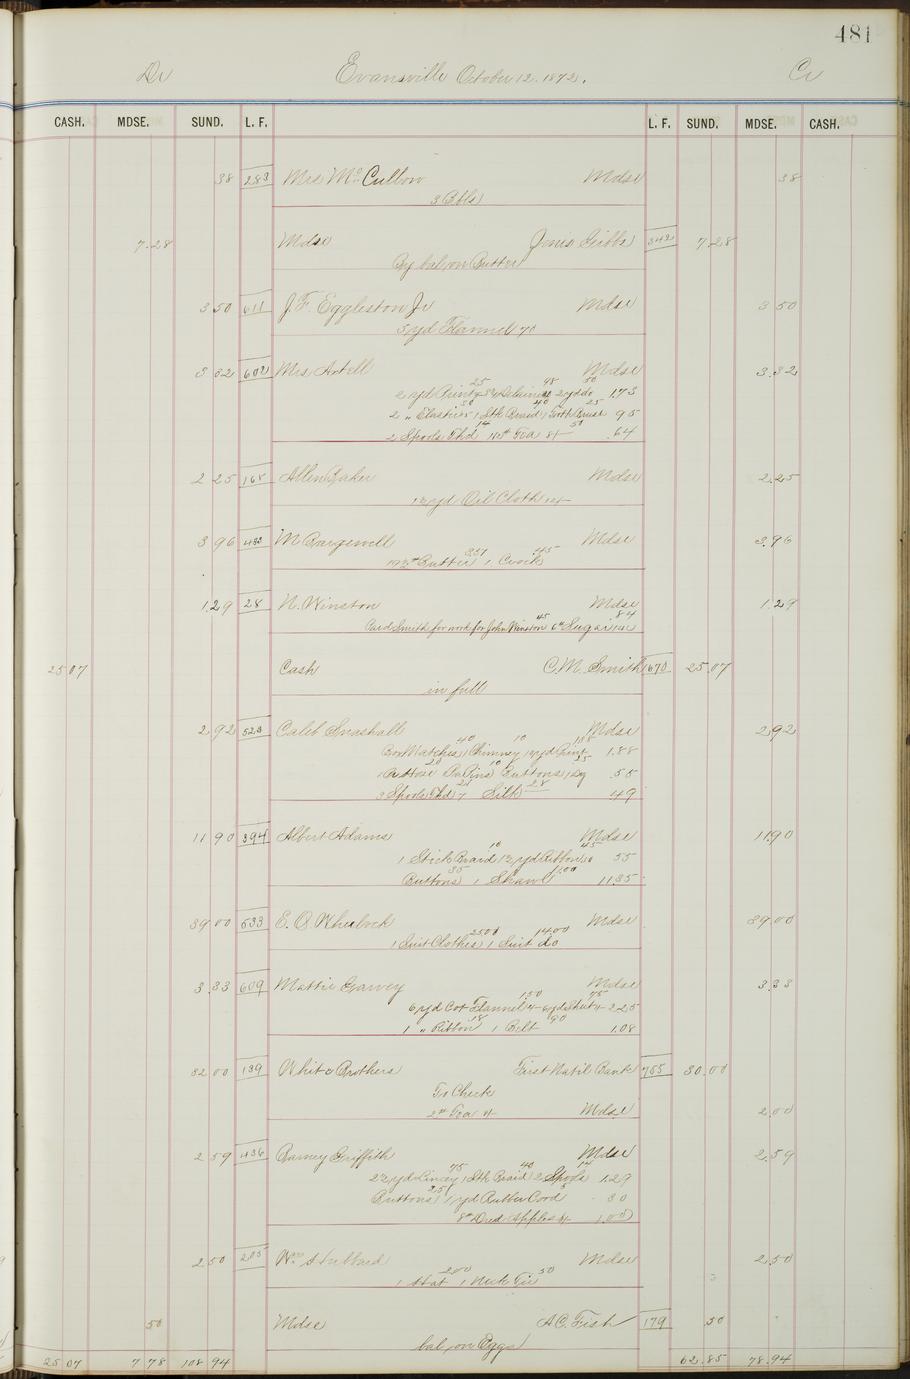 481
Dr Evansville October 12. 1872. Cr
CASH. MDSE. SUND. L. F. L. F. SUND. MDSE. CASH.
38 283 Mrs McCullow Mdse 38
3 Bbls
7.28 Mdse Jonis Gibbs 342 7.28
By bal, on Butter
3 50 611 J. F. Eggleston Jr Mdse 3 50
5 yd Flannel 70
3 32 602 Mrs Axtell Mdse 3.32
25 48 50
2 yd Print 2 yd do 1.73
30 40 25
2 " Elastic 1 Stk Braid 1 Tooth Brush 95
14 50
2 Spools Thd Tea 8/- .64
2 25 165 Allen Baker Mdse 2.25
1½ yd Oil Cloth 12/-
3 96 432 M Bargewell Mdse 3.96
351 45
19½# Butter 1 Crock
1.29 28 N. Winston Mdse 1.29
45 84
Paid Smith for work for John Winston 6# Sugar
25 07 Cash C. M. Smith 670 25.07
in full
2 92 523 Caleb Snashall Mdse 2 92
40 10
Box Matches 1 Chimney yd Print 1.88
20 10 25
Pins Buttons 1.55
21 28
3 Spools Thd 7 Silk 49
11 90 394 Albert Adams Mdse 11.90
10 45
1 Stick Braid 1½ yd Ribbon 30 55
35 11.00
Buttons 1 Shawl 11.35
39 00 533 E. O. Wheelock Mdse 39 00
25.00 14.00
1 Suit Clothes 1 Suit do
3.33 609 Mattie Garvey Mdse 3.33
1.50 75
6 yd Cot Flannel 2/- 2.25
18 90
1 " Ribbon 1 Belt 1.08
32 00 139 White Brothers First Natil Bank 755 30.00
To Check
2# Tea 8/- Mdse 2.00
2 59 436 Barney Griffith Mdse 2.59
75 40 14
2½ yd Lincey 1 Stk Braid 2 Spools 1.29
25 5
Buttons 1 yd Rubber Cord 30
8# Dried Apples 1.00
2 50 285 Wm Hubbard Mdse 2.50
2.00 50
1 Hat 1 Neck Tie
50 Mdse A. C. Fish 179 50
bal, on Eggs
25 07 7 78 108 94 62.85 78.94